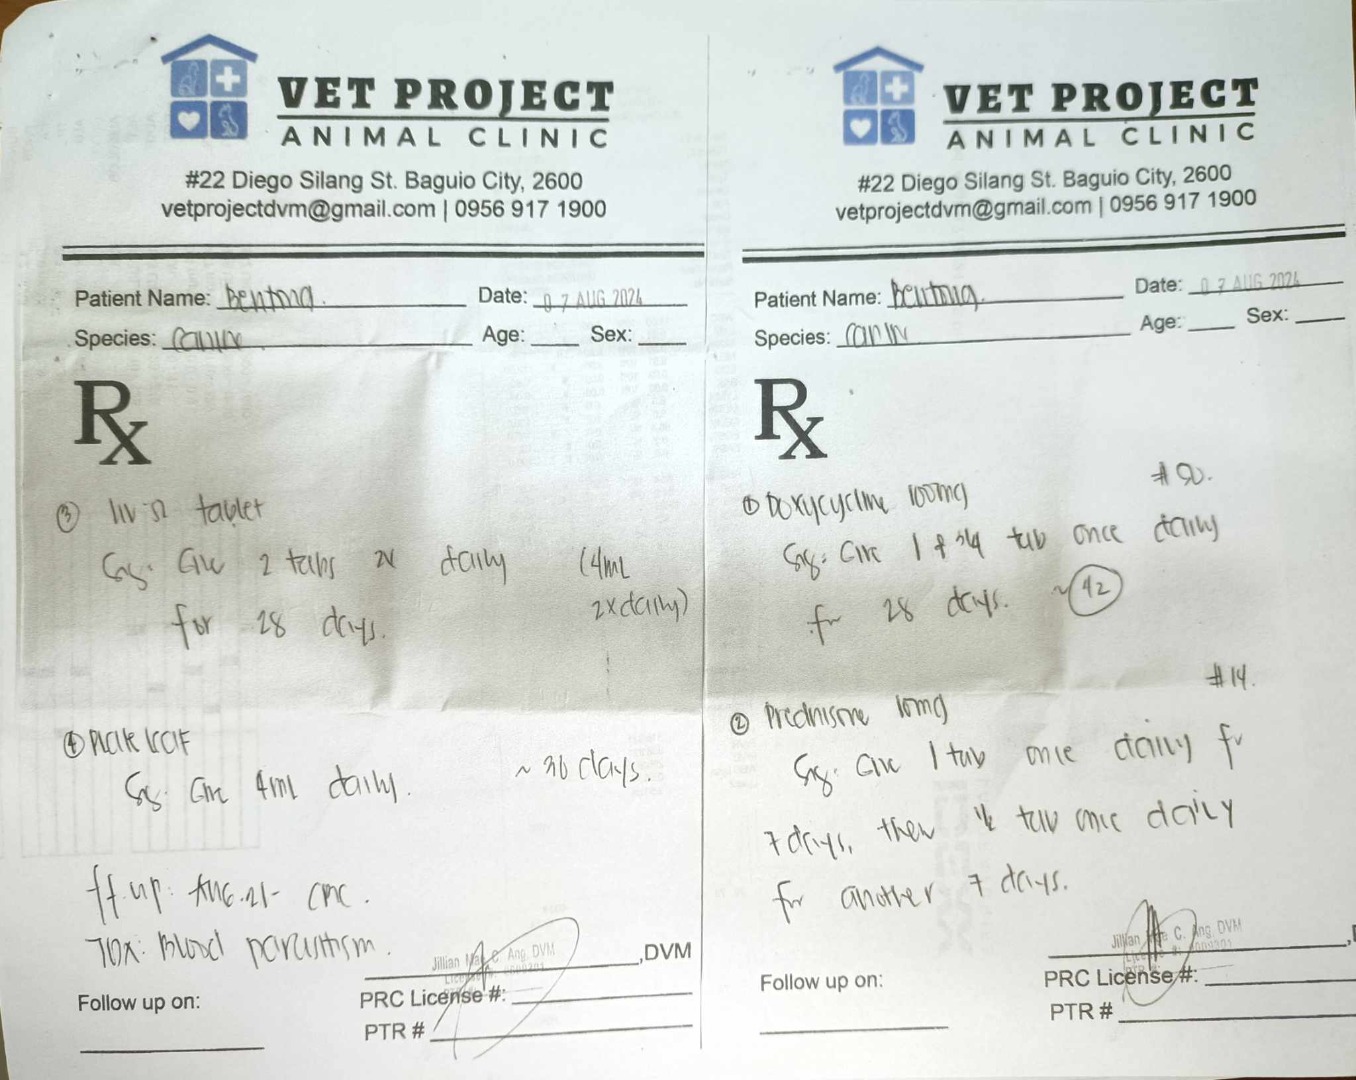 VET PROJECT
ANIMAL CLINIC
#22 Diego Silang St. Baguio City, 2600
vetprojectdvm@gmail.com | 0956 917 1900
Patient Name: Bentong.
Date: 07 AUG 2024
Species: canine
Age: ___ Sex: ___
Rx
③ liv-52 tablet
Sig: Give 2 tabs 2x daily (4mL
2x daily)
for 28 days.
④
Sig: Give 4mL daily. ~ 30 days.
ff. up: AUG. 21- CBC.
TDx: Blood parasitism.
Jillian Mae C. Ang, DVM
,DVM
Follow up on:
PRC License #:
PTR #
VET PROJECT
ANIMAL CLINIC
#22 Diego Silang St. Baguio City, 2600
vetprojectdvm@gmail.com | 0956 917 1900
Patient Name: Bentong.
Date: 07 AUG 2024
Species: canine
Age: ___ Sex: ___
Rx
① Doxycycline 100mg #50.
Sig: Give 1 & 3/4 tab once daily
for 28 days. ~ 42
② Prednisone 10mg #14.
Sig: Give 1 tab once daily for
7 days, then 1/2 tab once daily
for another 7 days.
Jillian Mae C. Ang, DVM
Follow up on:
PRC License #:
PTR #